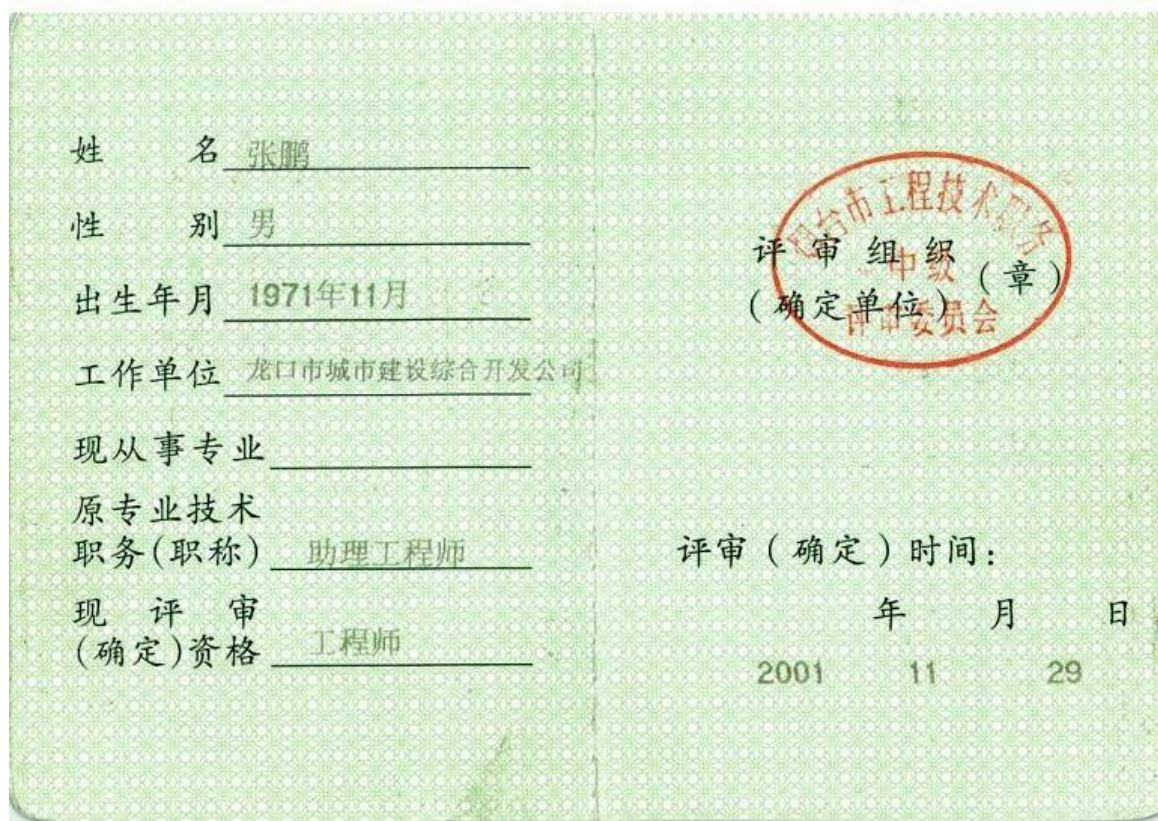 姓名 张鹏
性别 男
出生年月 1971年11月
工作单位 龙口市城市建设综合开发公司
现从事专业
原专业技术
职务(职称) 助理工程师
现评审
(确定)资格 工程师
烟台市工程技术职务
中级
评审委员会
评审组织
(确定单位)
(章)
评审（确定）时间：
年 月 日
2001 11 29